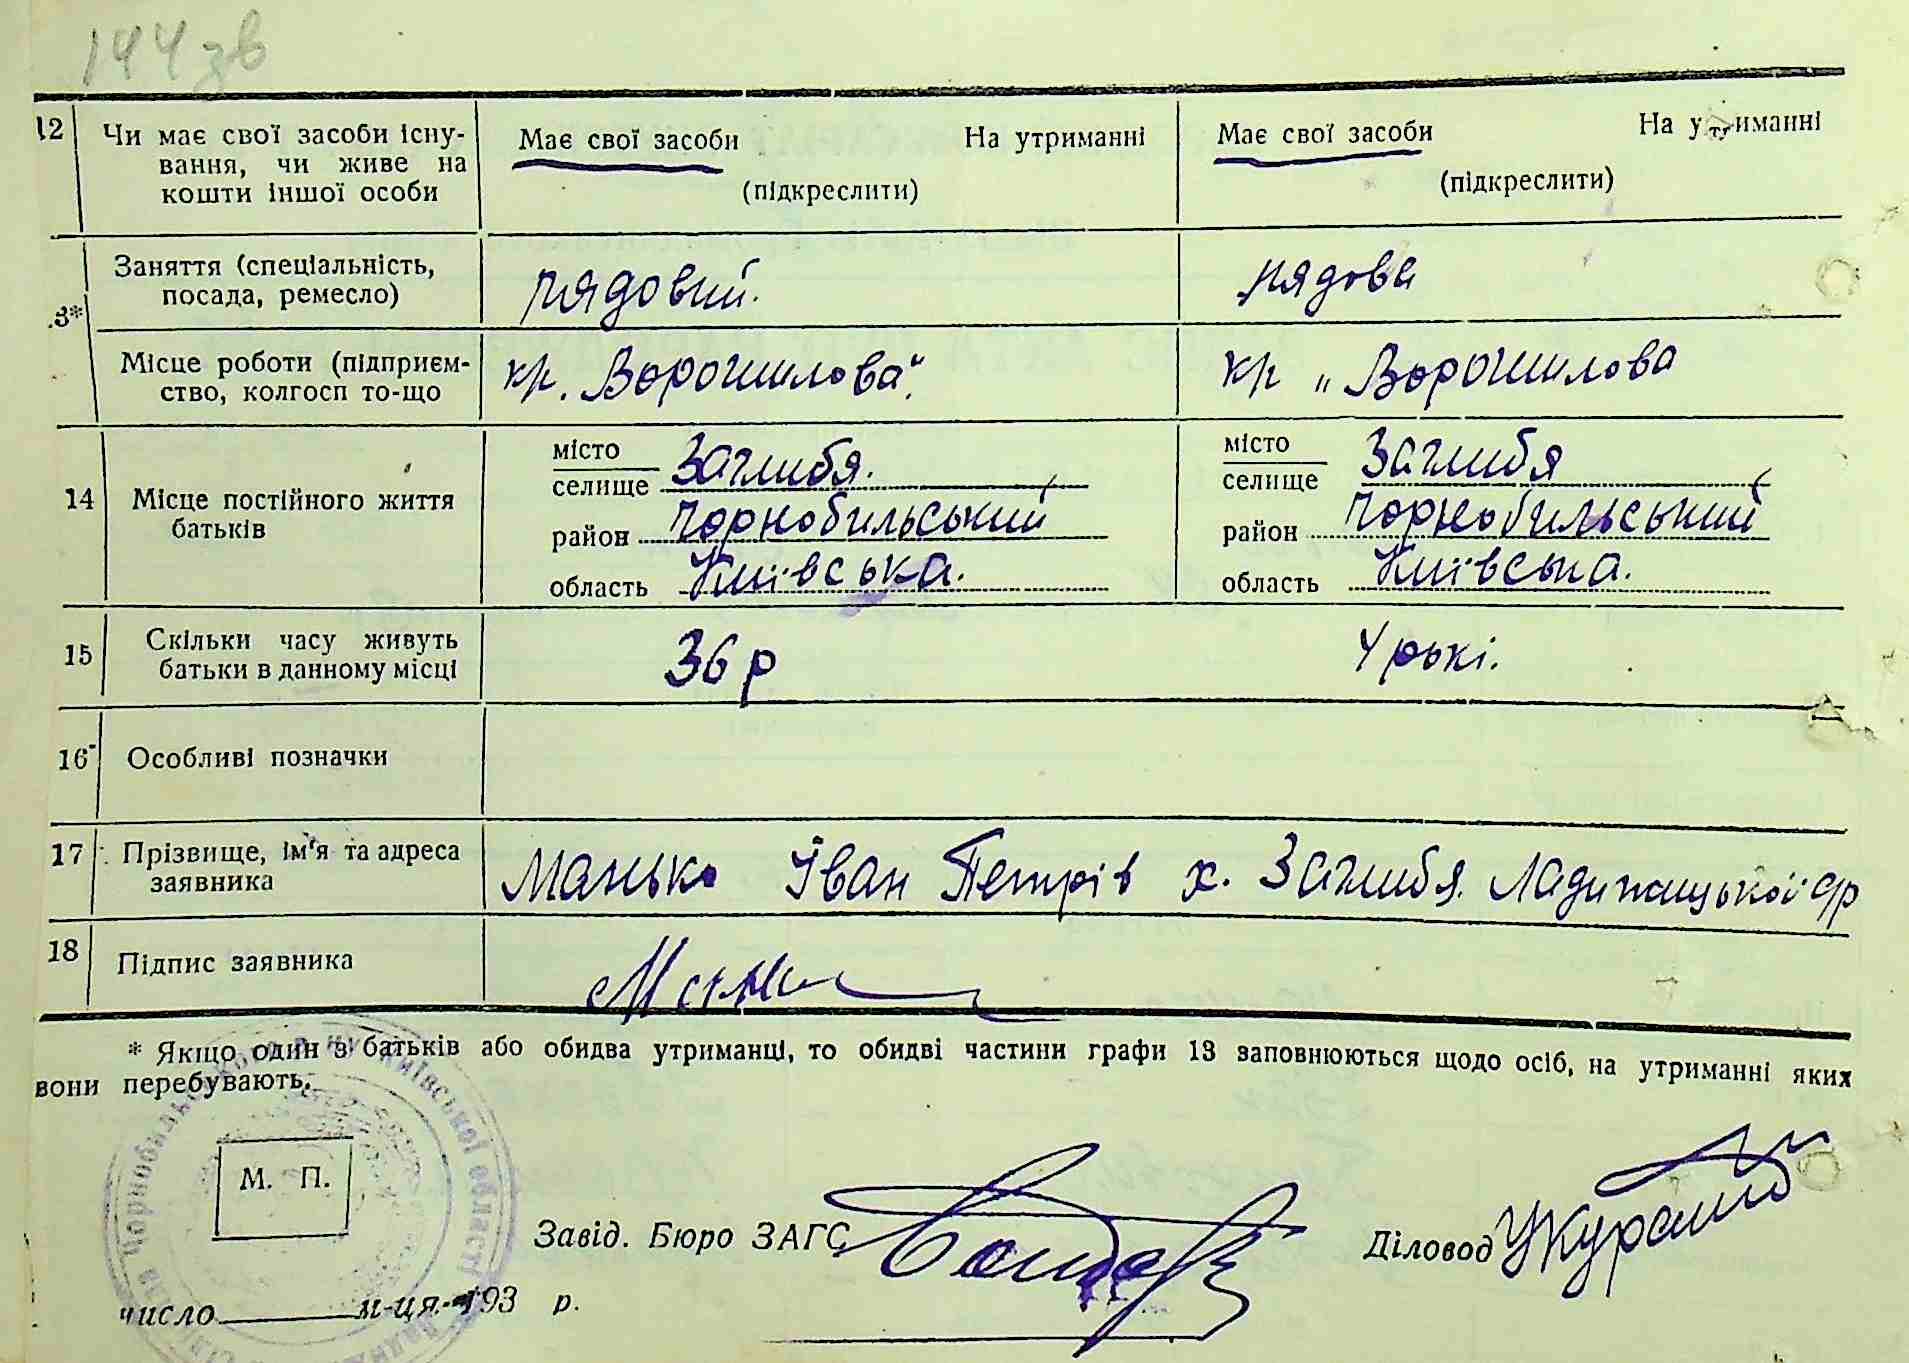 144 зв
12 Чи має свої засоби існу- Має свої засоби На утриманні Має свої засоби На утриманні
вання, чи живе на
кошти іншої особи (підкреслити) (підкреслити)
Заняття (спеціальність, рядовий. рядова
посада, ремесло)
3*
Місце роботи (підприєм- кр. Ворошилова". кр „Ворошилова
ство, колгосп то-що
місто місто
селище Заглибя. селище Заглибя
14 Місце постійного життя район Чорнобильський район Чорнобильський
батьків
область Київська. область Київська.
15 Скільки часу живуть 36 р 4 рокі.
батьки в данному місці
16 Особливі позначки
17 Прізвище, ім'я та адреса Манько Іван Петрів х. Заглибя. Ладижицької с/р
заявника
18 Підпис заявника
* Якщо один з батьків або обидва утриманці, то обидві частини графи 13 заповнюються щодо осіб, на утриманні яких
вони перебувають.
М. П.
Завід. Бюро ЗАГС Діловод
число м-ця 193 р.
Чорнобильського р-ну Київської області